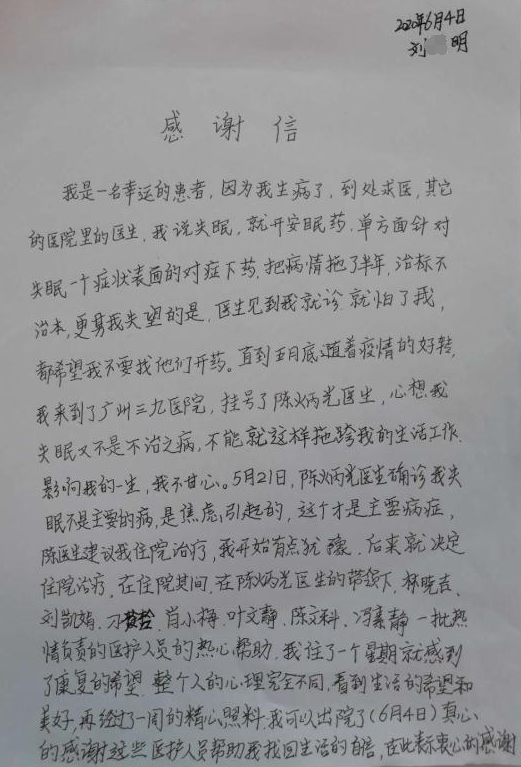 2020年6月4日
刘 明
感谢信
我是一名幸运的患者，因为我生病了，到处求医，其它
的医院里的医生，我说失眠，就开安眠药。单方面针对
失眠一个症状表面的对症下药，把病情拖了半年，治标不
治本，更另我失望的是，医生见到我就诊，就怕了我，
都希望我不要找他们开药。直到五月底随着疫情的好转，
我来到了广州三九医院，挂号了陈炳光医生，心想我
失眠又不是不治之病，不能就这样拖跨我的生活工作.
影响我的一生，我不甘心。5月21日，陈炳光医生确诊我失
眠不是主要的病，是焦虑引起的，这个才是主要病症，
陈医生建议我住院治疗，我开始有点犹豫. 后来就决定
住院治疗，在住院其间，在陈炳光医生的带领下，林晓吉、
刘凯娟、刁 肖小梅、叶文静、陈文科、冯素静一批热
情负责的医护人员的热心帮助，我住了一个星期就感到
了康复的希望，整个人的心理完全不同，看到生活的希望和
美好，再经过一周的精心照料，我可以出院了（6月4日）真心
的感谢这些医护人员帮助我找回生活的自信，在此表示衷心的感谢